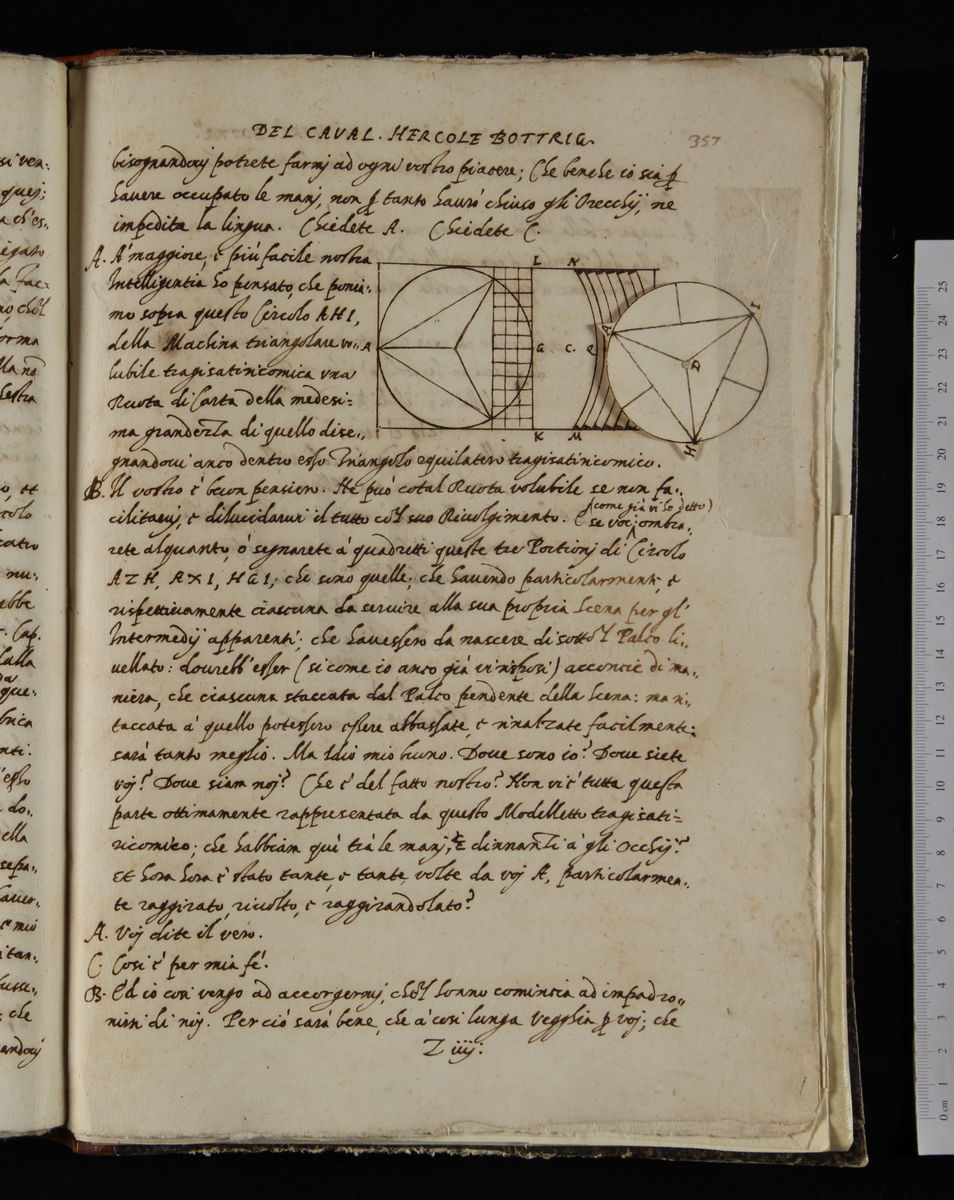 DEL CAVAL. HERCOLE BOTTRIG.
357
bisognandouj potrete farmj ad ogni vostro piacere; Che benche io sia ꝑ
hauere occupato le manj, non ꝑ tanto hauró chiuso gli Orecchij, ne
impedita la lingua. Chiedete A. Chiedete C.
A. A' maggiore, e piú facile nostra
Intelligentia ho pensato, che ponia:,
mo sopra questo Circolo AHI,
della Machina triangolare vo:,
lubile tragisatiricomica vna
Ruota di Carta della medesi:
ma grandezza di quello dise:,
gnandoui anco dentro esso Triangolo equilatero tragisatiricomico.
L N
A G C. Q A D I
K M H
B. Il vostro è buon pensiero. Ne può cotal Ruota volubile se non fa:,
cilitaruj, e dilucidarui il tutto co'l suo Riuolgimento. (come già vi ho detto)
E se voj ombra:,
rete alquanto, ò segnarete à quadretti queste tre Portionj di Circolo
AZH, AXI, HGI; che sono quelle; che hauendo particolarmente, e
rispettiuamente ciascuna da seruire alla sua propria Scena per gl'
Intermedij apparenti: che hauessero da nascere di sotto'l Palco li:,
uellato: dourebb'esser (si come io anco già vi risposi) acconcie di ma:,
niera, che ciascuna staccata dal Palco pendente della Scena: ma ri:,
taccata à quello potessero essere abbassate, e rinalzate facilmente:
sará tanto meglio. Ma Idio mio buno. Doue sono io? Doue siete
voj? Doue siam noj? Che è del fatto nostro? Non vi è tutta questa
parte ottimamente rappresentata da questo Modelletto tragisati:
ricomico; che habbiam quì trà le manj, E dinnanti à gli Occhij?
Et hora hora è stato tante, e tante volte da voj A, particolarmen:,
te raggirato, riuolto, e raggirandolato?
A. Voj dite il vero.
C. Cosi è per mia fé.
B. Ed io cosi vengo ad accorgermj, cho'l sonno comincia ad impadro:,
nirsi di noj. Per ciò sará bene, che à cosi lunga vegghia ꝑ voj; che
Z iiij: